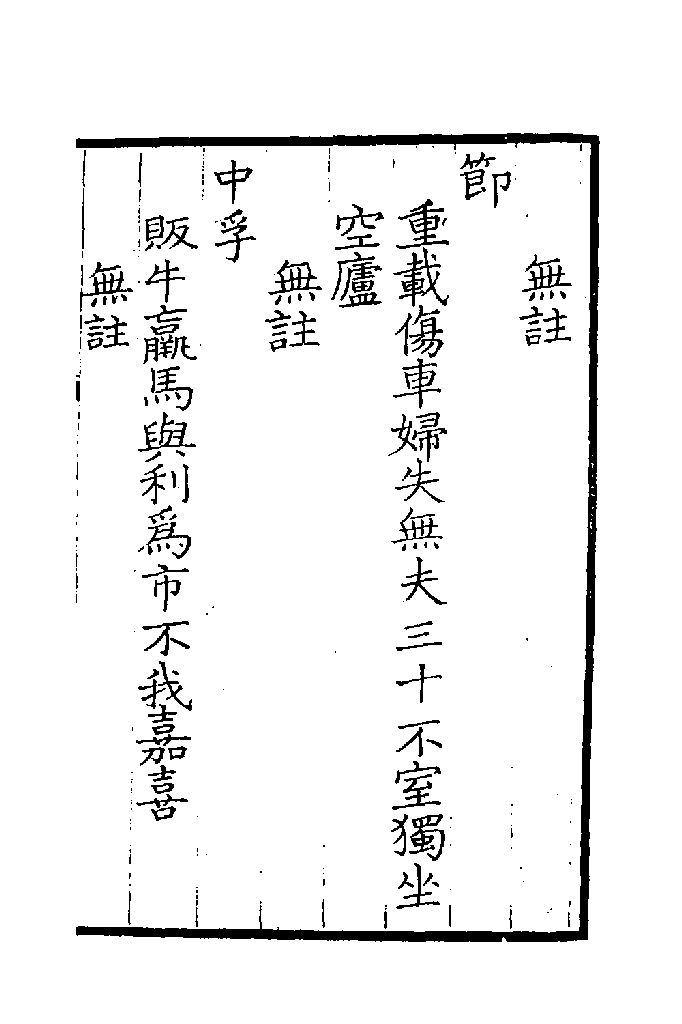 無註
節
重載傷車婦失無夫三十不室獨坐
空廬
無註
中孚
販牛羸馬與利爲市不我嘉喜
無註